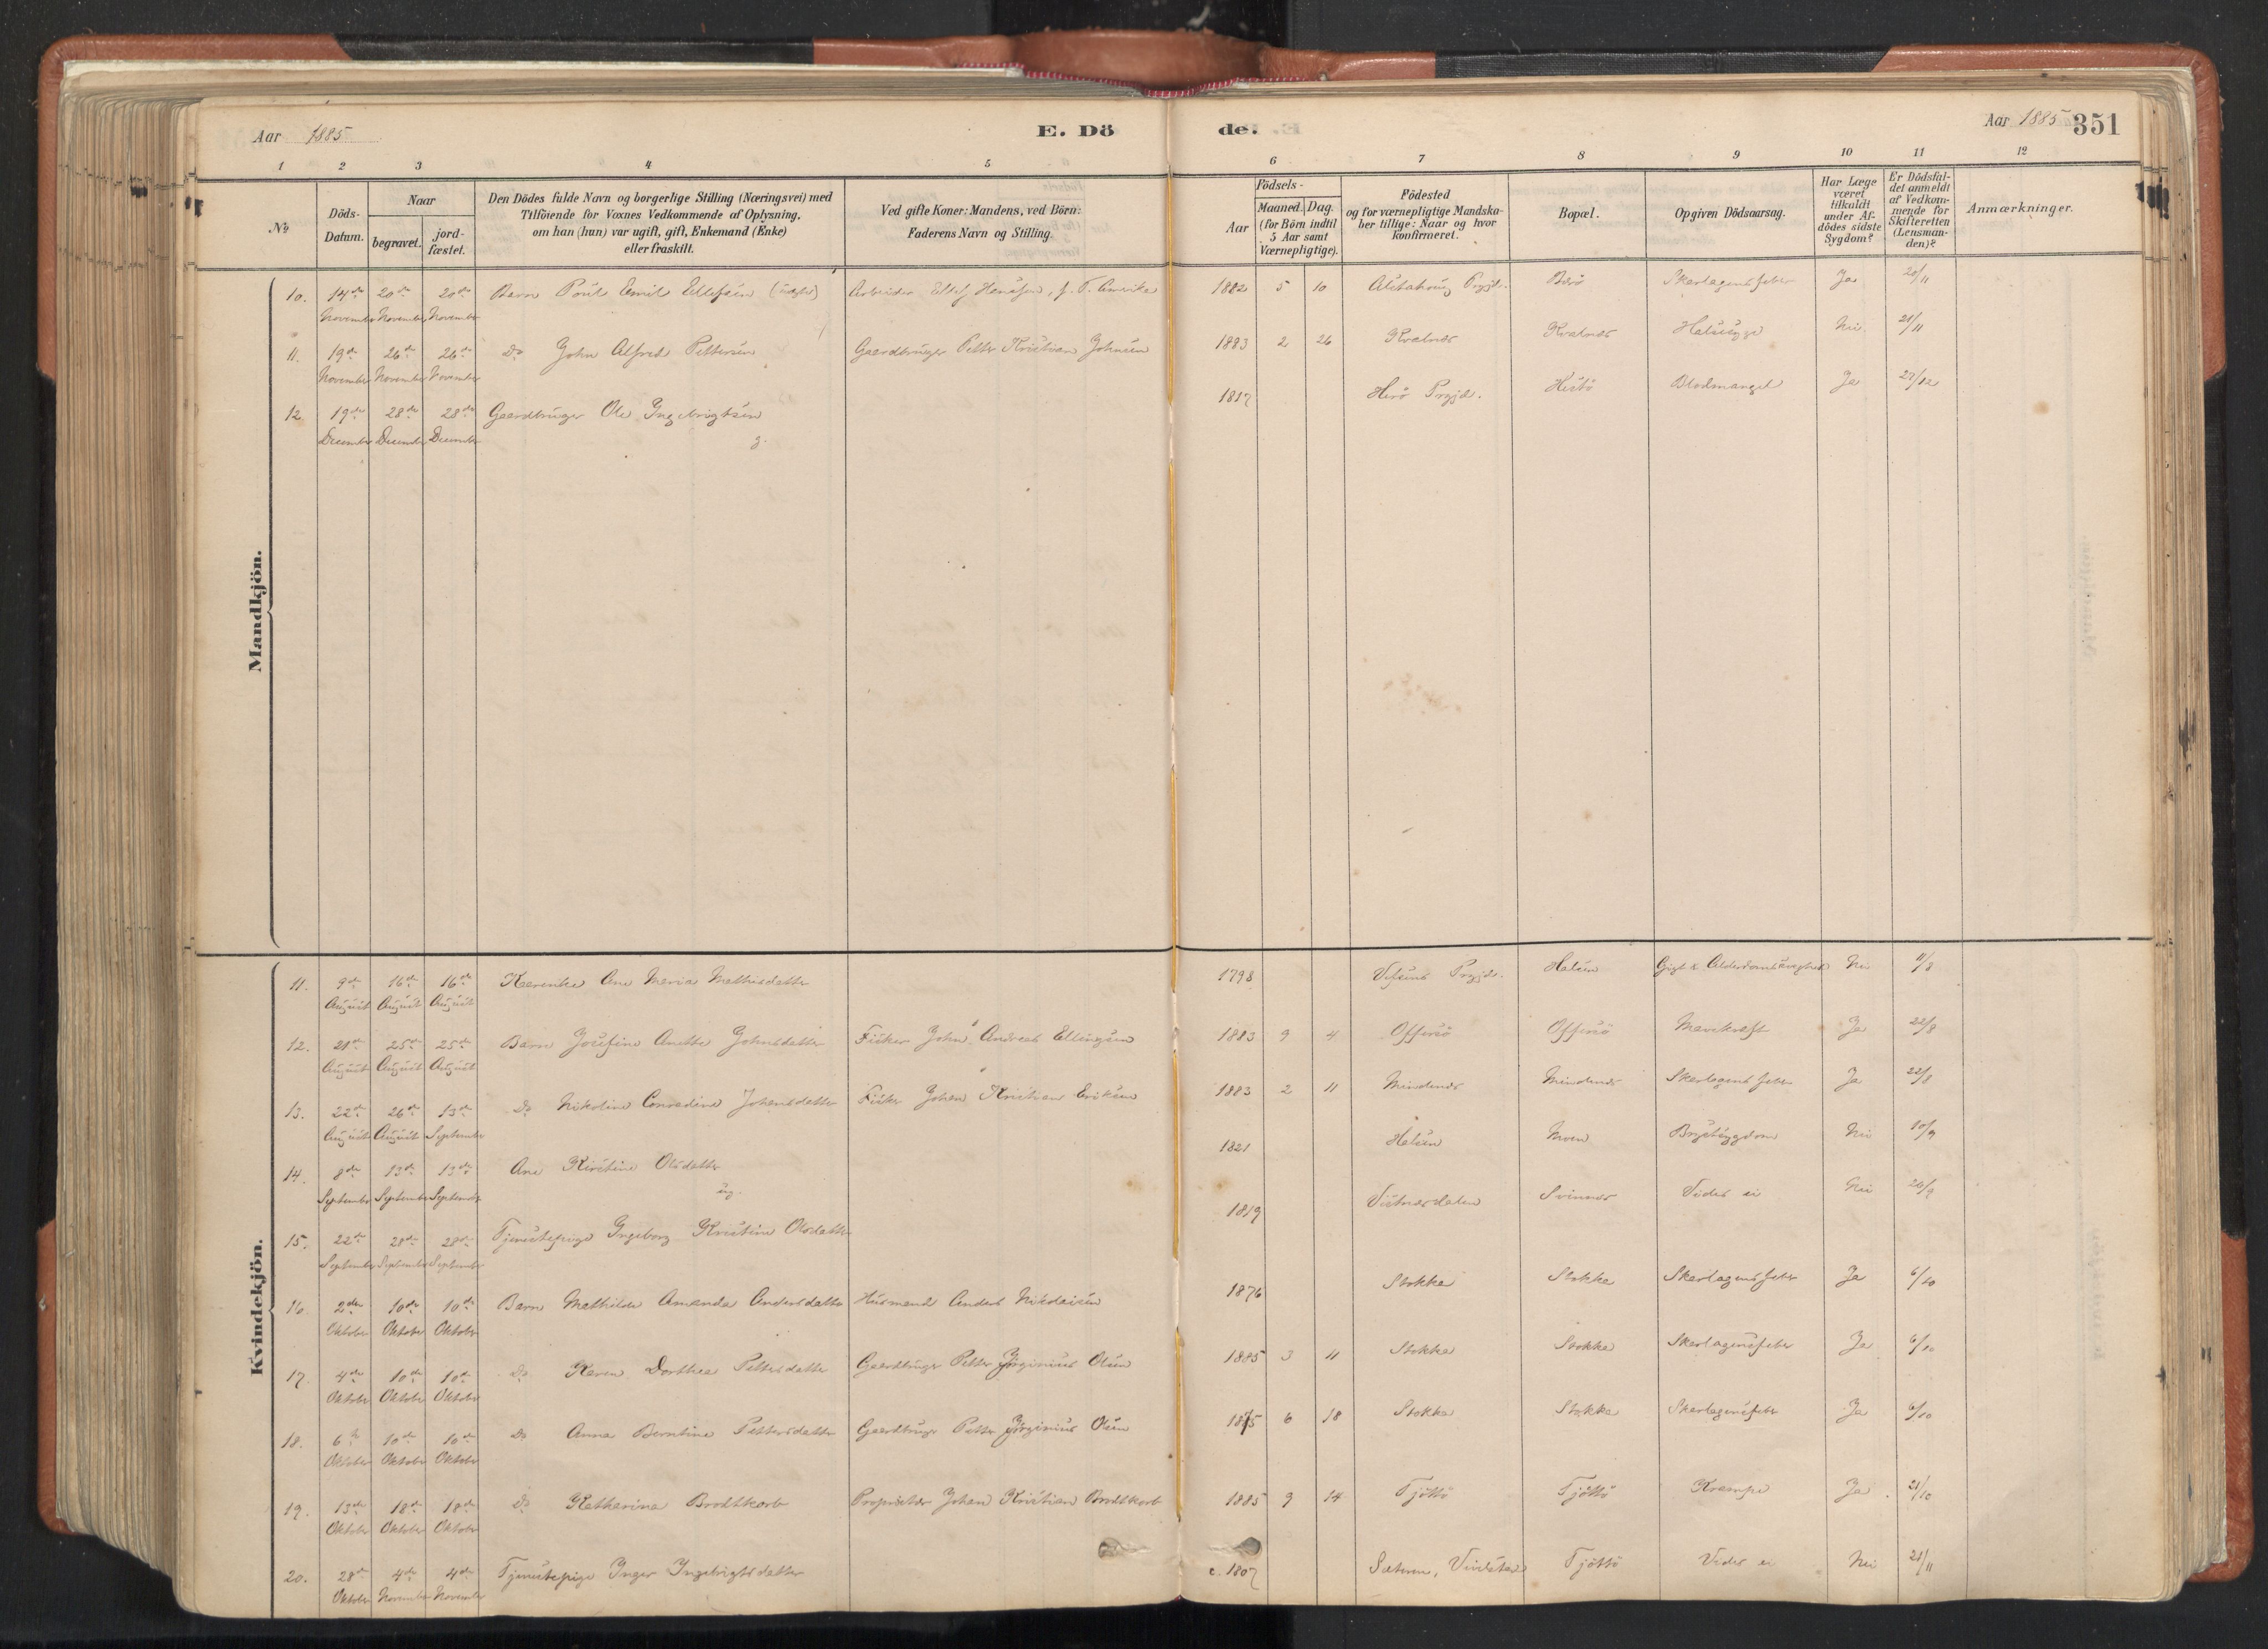 Aar 1885 E. Dö de. Aar 1885 351
1 2 3 4 5 6 7 8 9 10 11 12
№
Döds-Datum.
Naar
begravet.
jord-fæstet.
Den Dödes fulde Navn og borgerlige Stilling (Næringsvei) med
Tilföiende for Voxnes Vedkommende af Oplysning,
om han (hun) var ugift, gift, Enkemand (Enke)
eller fraskilt.
Ved gifte Koner: Mandens, ved Börn:
Faderens Navn og Stilling.
Födsels-
Aar
Maaned. Dag.
(for Börn indtil
5 Aar samt
Værnepligtige).
Födested
og for værnepligtige Mandska-
ber tillige: Naar og hvor
konfirmeret.
Bopæl.
Opgiven Dödsaarsag.
Har Læge
været
tilkaldt
under Af-
dödes sidste
Sygdom?
Er Dödsfal-
det anmeldt
af Vedkom-
mende for
Skifteretten
(Lensman-
den)?
Anmærkninger.
Mandkjön.
10. 14de November 20de November 20de November Barn Poul Emil Ellefsen Arbeider Amerika 1882 5 10 Alstahoug Prgjd. Skarlagensfeber Ja 20/11
11. 19de November 26de November 26de November Do John Alfred Pettersen Gaardbruger Petter Kristian Johnsen 1883 2 26 Kvalnæs Kvalnæs Halssyge Nei 21/11
12 19de December 28de December 28de December Gaardbruger Ole Ingebrigtsen g. 1817 Herö Prgjd. Blodmangel Ja 22/12
Kvindekjön.
11. 9de August 16de August 16de August Ane Maria Mathisdatter 1798 Prgjd. Gigt & Alderdomssvaghed Nei 11/8
12. 21de August 25de August 25de August Barn Josefine Anette Johnsdatter Fisker John Andreas Ellingsen 1883 9 4 Offersö Offersö Mavekræft Ja 22/8
13. 22de August 26de August 13de September Do Nikoline Conradine Johansdatter Fisker Johan Kristian Eriksen 1883 2 11 Mindenæs Mindenæs Skarlagensfeber Ja 22/8
14. 8de September 13de September 13de September Ane Kirstine Olsdatter ug. 1821 Moen Brystsygdom Nei 10/9
15. 22de September 28de September 28de September Tjenestepige Ingeborg Kristine Olsdatter 1819 Vistnæsdalen Svinnæs Vides ei Nei
16. 2den Oktober 10de Oktober 10de Oktober Barn Mathilde Amanda Andersdatter Husmand Anders Nikolaisen 1876 Stokka Stokka Skarlagensfeber Ja 6/10
17. 4de Oktober 10de Oktober 10de Oktober Do Karen Dorthea Pettersdatter Gaardbruger Petter Olsen 1885 3 11 Stokka Stokka Skarlagensfeber Ja 6/10
18. 6te Oktober 10de Oktober 10de Oktober Do Anna Berntine Pettersdatter Gaardbruger Petter Olsen 1875 6 18 Stokka Stokka Skarlagensfeber Ja 6/10
19. 13de Oktober 18de Oktober 18de Oktober Do Katharina Brodtkorb Proprietær Johan Kristian Brodtkorb 1885 9 14 Tjöttö Tjöttö Krampe Ja 21/10
20. 28de Oktober 4de November 4de November Tjenestepige Inger Ingebrigtsdatter c. 1807 Tjöttö Vides ei Nei 21/11